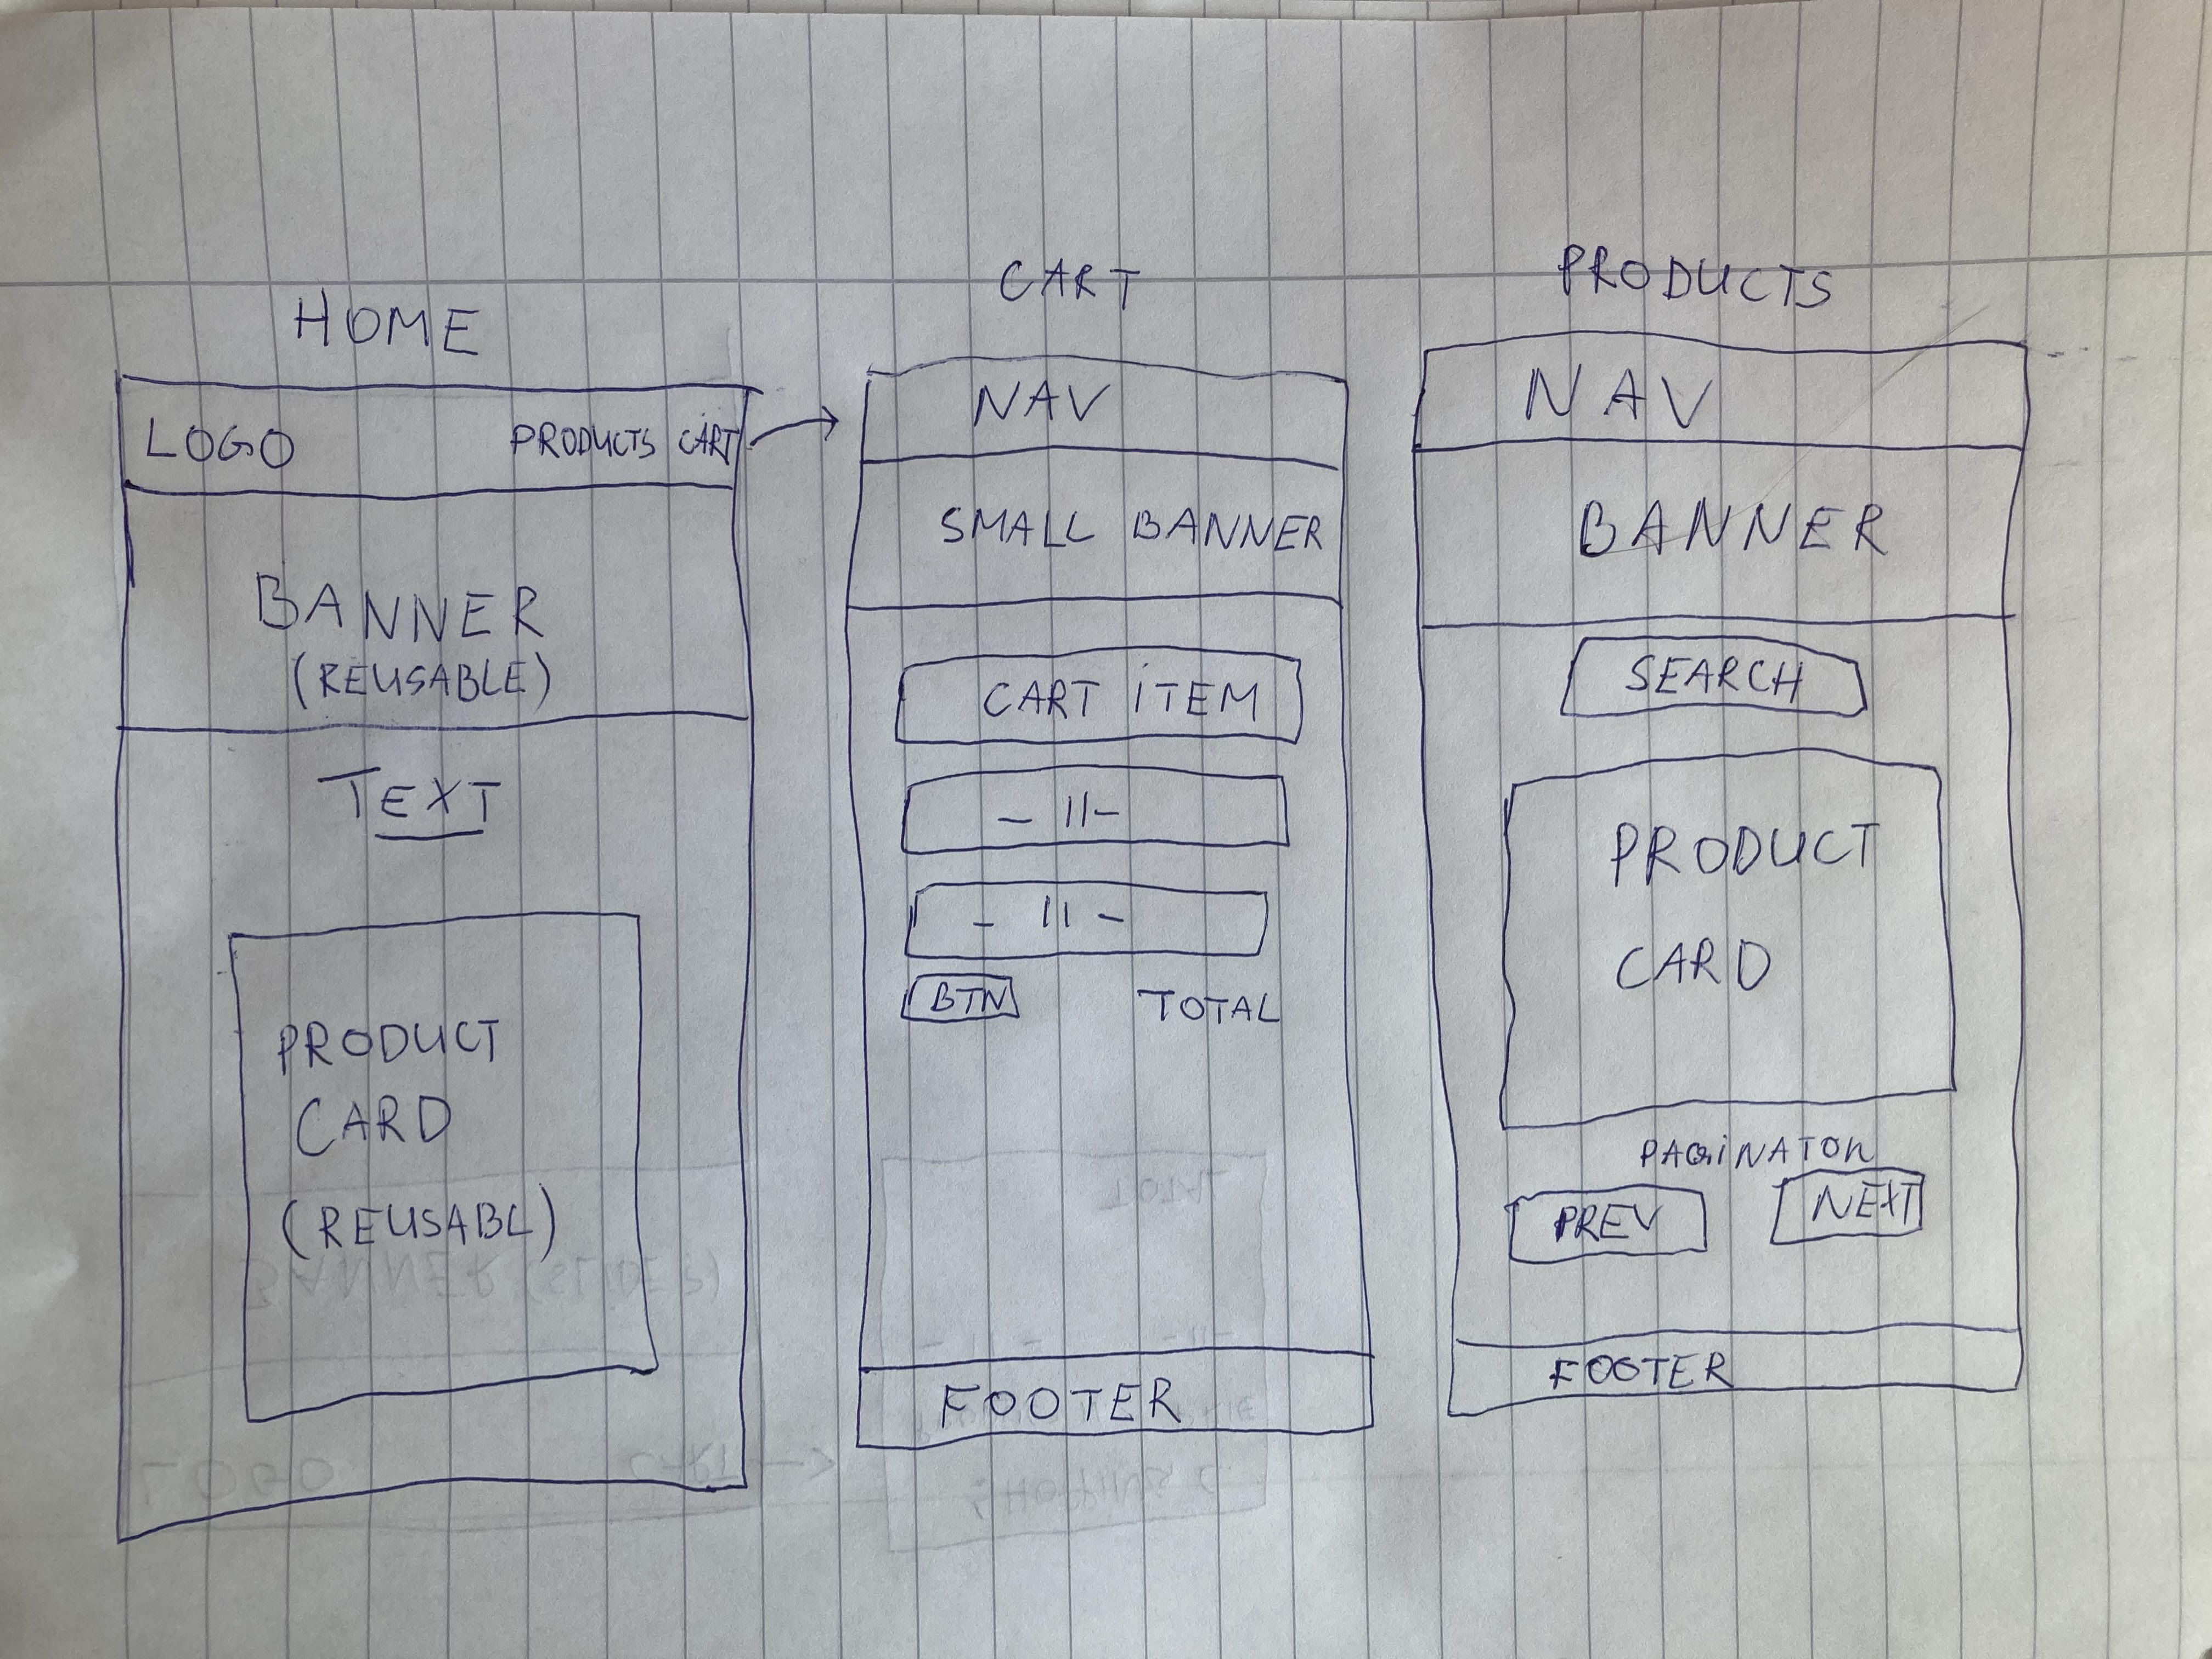 HOME
LOGO PRODUCTS CART
BANNER
(REUSABLE)
TEXT
PRODUCT
CARD
(REUSABL)
CART
NAV
SMALL BANNER
CART ITEM
- 11-
- 11 -
BTN TOTAL
FOOTER
PRODUCTS
NAV
BANNER
SEARCH
PRODUCT
CARD
PAGINATOR
PREV NEXT
FOOTER